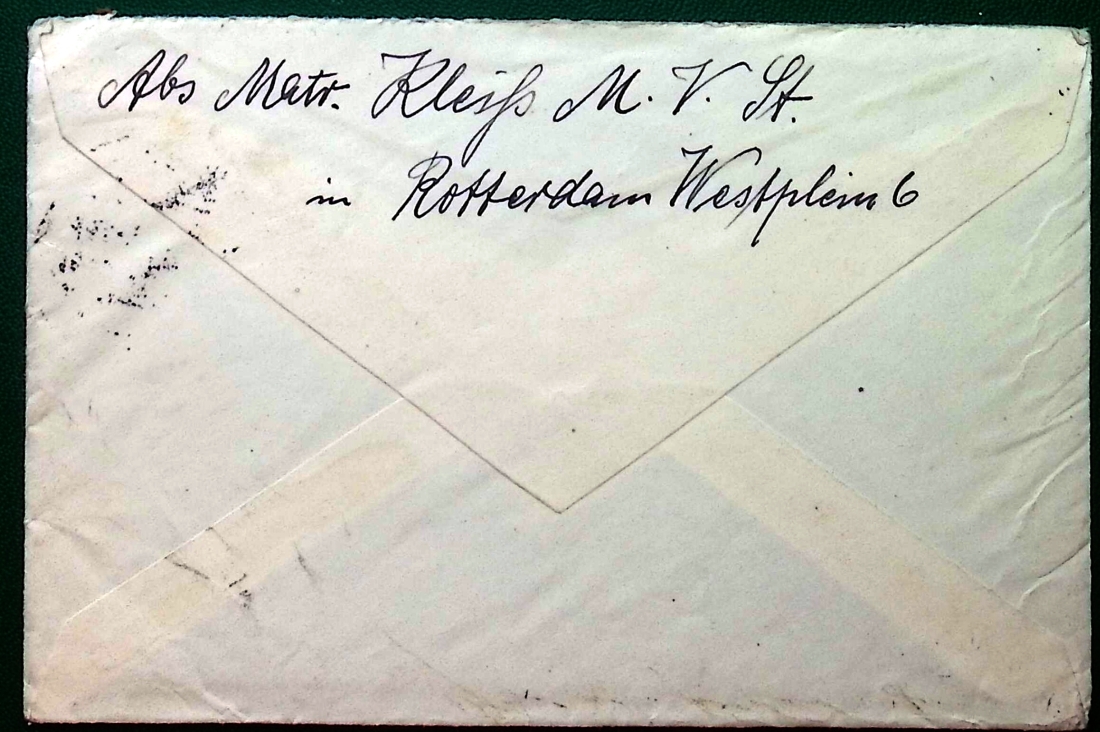 Abs Matr. Kleiß M. V. St.
in Rotterdam Westplein 6